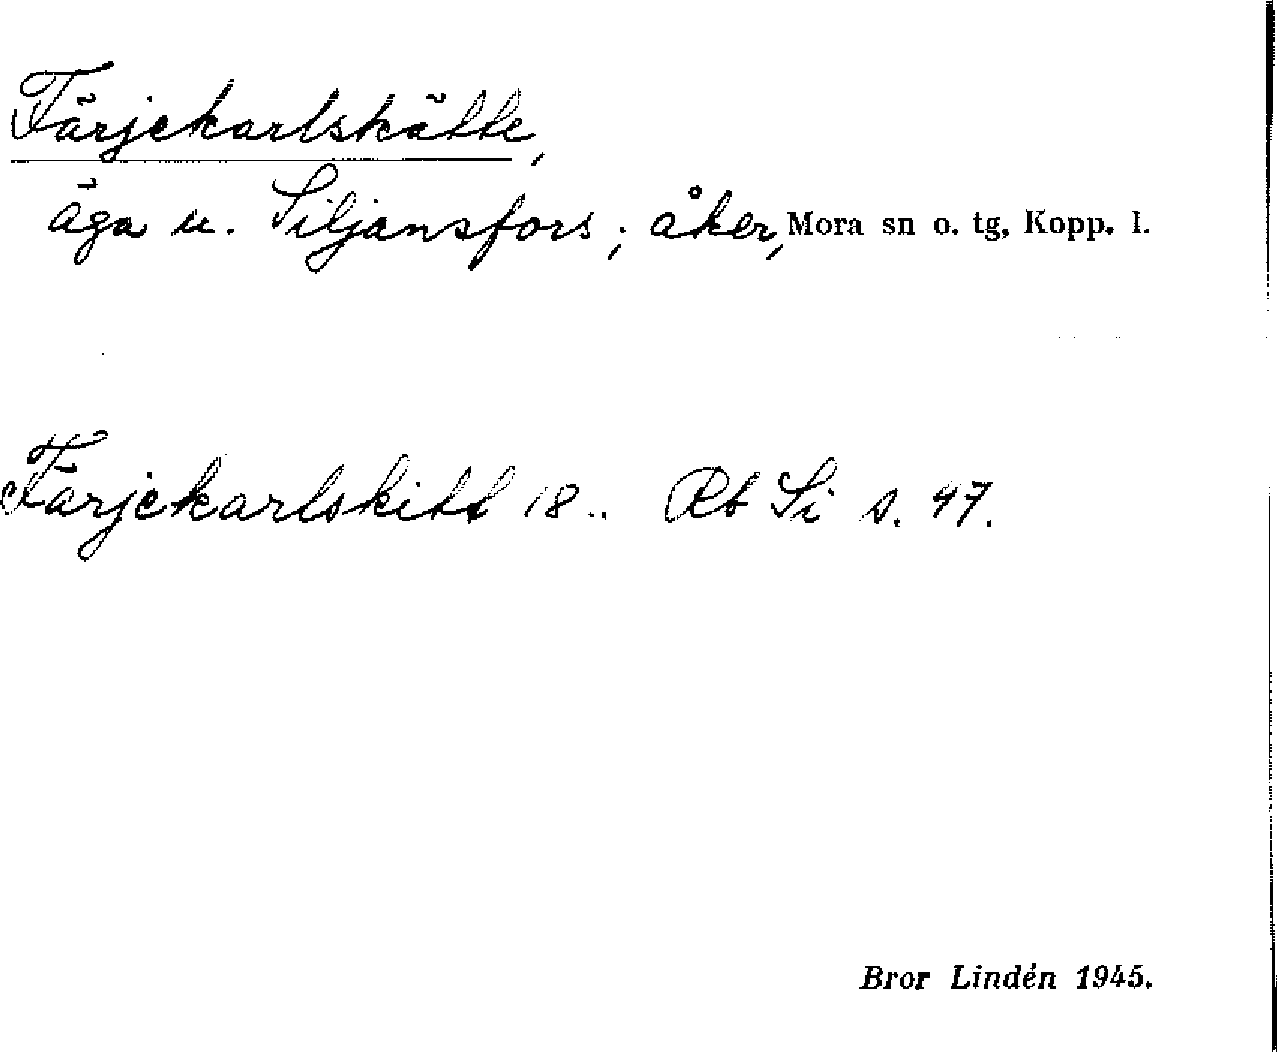 Färjekarlskätte,
äga u. Siljansfors; åker, Mora sn o. tg, Kopp. l.
Färjekarlskitt 18.. Rb Si s. 47.
Bror Lindén 1945.